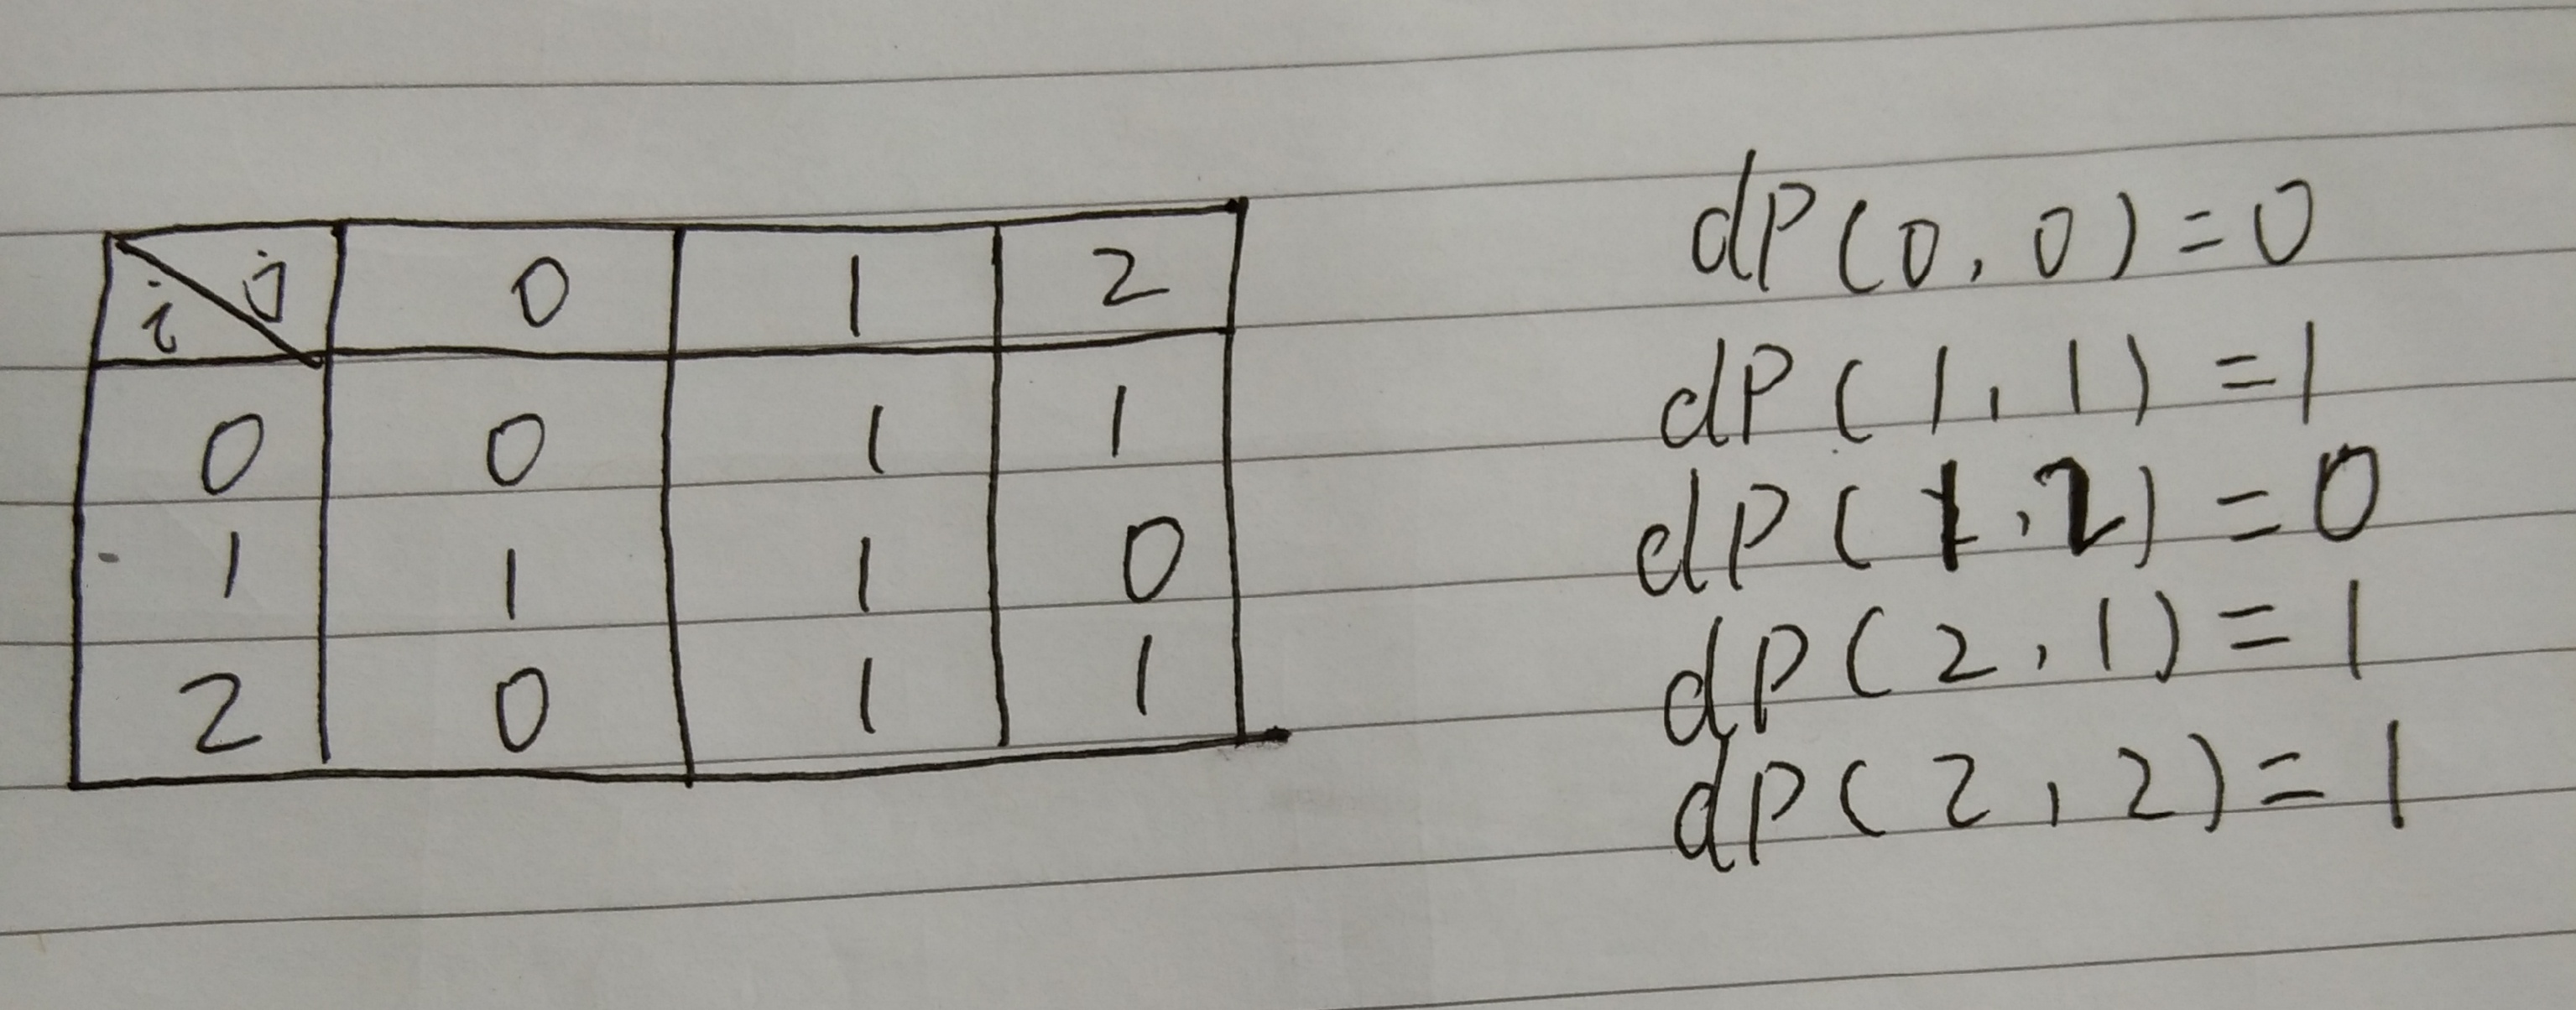 i j 0 1 2
0 0 1 1
1 1 1 0
2 0 1 1
dP(0,0)=0
dP(1,1)=1
dP(1,2)=0
dP(2,1)=1
dP(2,2)=1